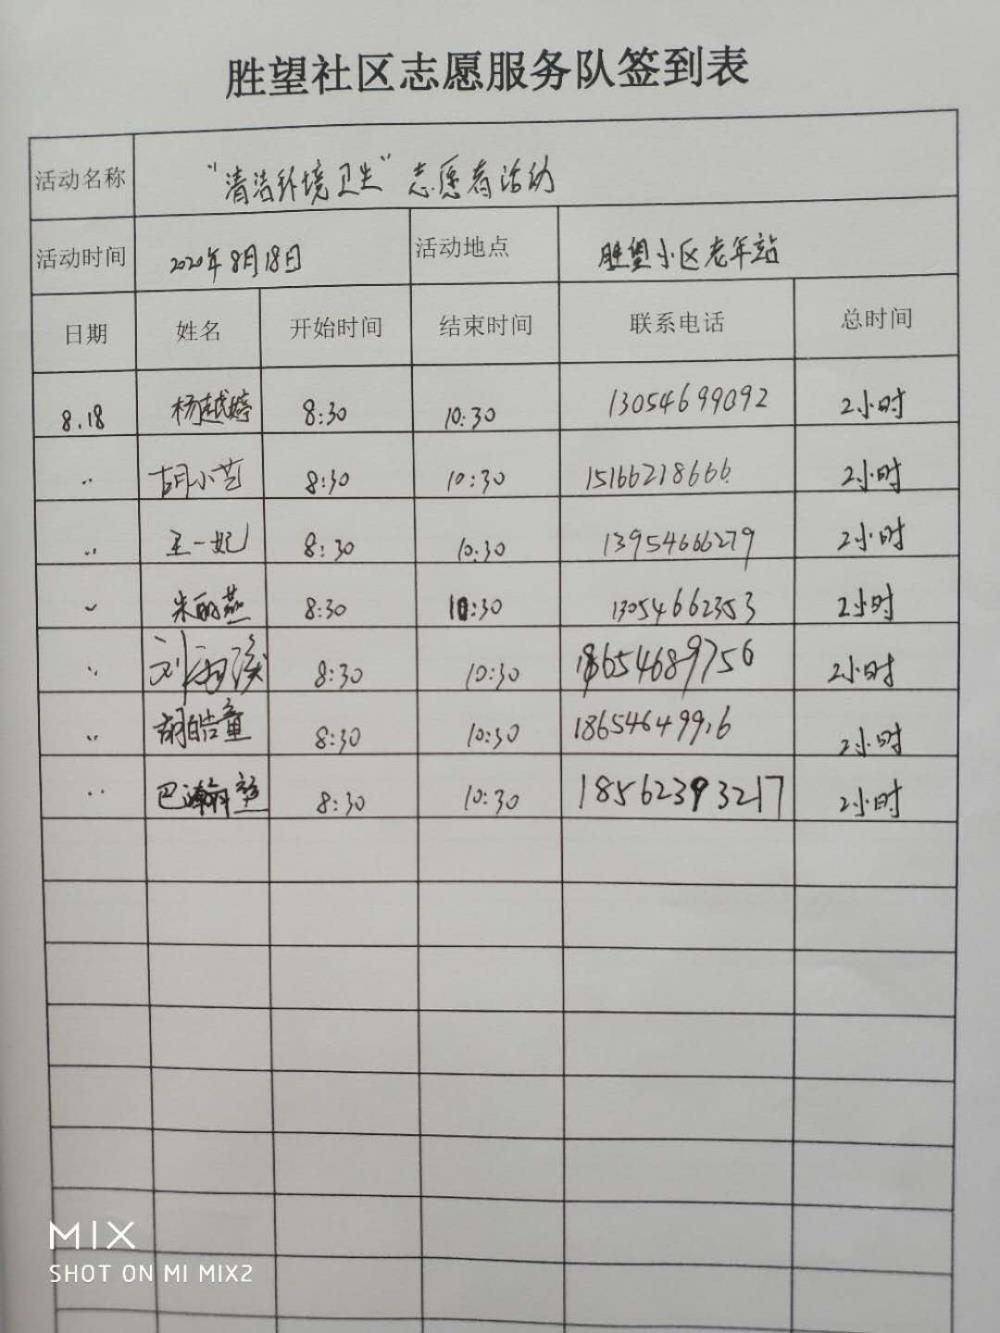 胜望社区志愿服务队签到表
活动名称 "清洁环境卫生"志愿者活动
活动时间 2020年8月18日 活动地点 胜望小区老年站
日期 姓名 开始时间 结束时间 联系电话 总时间
8.18 杨越婷 8:30 10:30 13054699092 2小时
〃 胡小艺 8:30 10:30 15166218666 2小时
〃 王一妃 8:30 10:30 13954666279 2小时
〃 朱丽燕 8:30 10:30 13054662353 2小时
〃 刘雨 8:30 10:30 18654689756 2小时
〃 胡皓童 8:30 10:30 2小时
〃 巴瀚 8:30 10:30 18562393217 2小时
MIX
SHOT ON MI MIX2